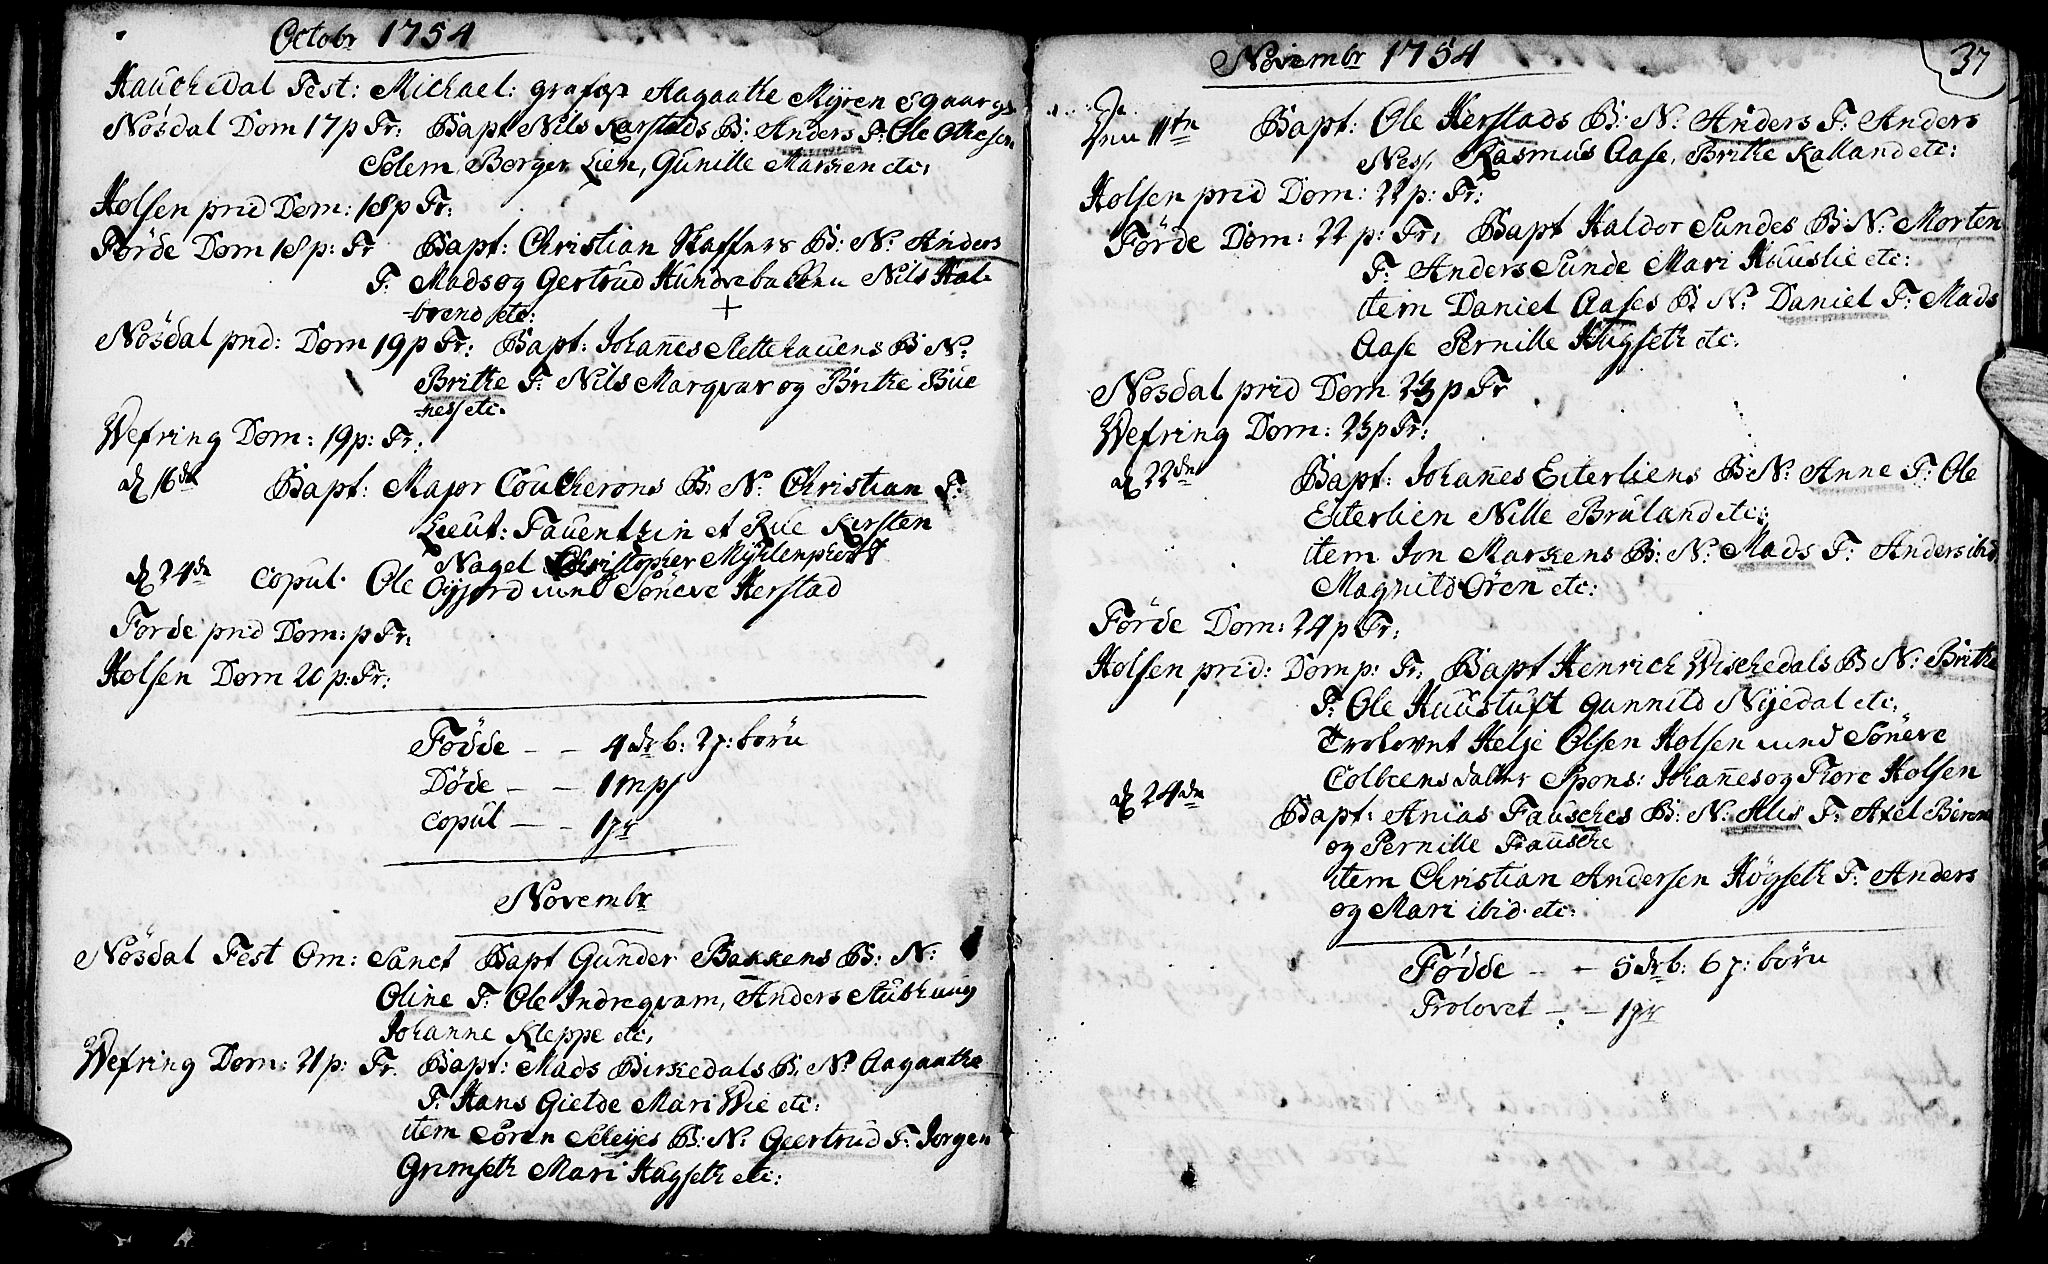 Octobr 1754
Hauchedal Fest: Michael: grafæst Aagaathe Myren 89aar gl
Nøsdal Dom 17 p Fr: Bapt Nils Karstads B: Anders F: Ole Othesen
Solem, Borger Lien, Gunille Marken etc:
Holsen prid Dom: 18 p Fr:
Førde Dom 18 p: Fr Bapt: Christian Staffers B: N: Anders
F: Mads og Gertrud Hundrebakken Nils Hal-
brend etc:
Nøsdal prid: Dom 19 p Fr: Bapt: Johañes Slettehauens B N:
Brithe F: Nils Marqvar og Brithe Bue
ness etc:
Wefring Dom: 19 p: Fr:
d 16de Bapt: Major Coucherons B: N: Christian F:
Lieut: Fauentzin et Rue Kirsten
Nagel Christopher Myhlenphort
d 24de Copul: Ole Oyjord und Søneve Herstad
Førde prid Dom: p Fr:
Holsen Dom 20 p: Fr:
Fødde - - 4 drb: 2 p: børn
Døde - - 1 mp
Copul - - 1 pr
Novembr
Nøsdal Fest Om: Sanct Bapt Gunder Bakkens B: N:
Oline F: Ole Indreqvam, Anders Stubhaug
Johanne Kleppe etc:
Wefring Dom: 21 p: Fr. Bapt: Mads Birkedals B: N: Aagaathe
F: Hans Gielde Mari Wie etc:
item Søren Sleijes B: N: Geertrud F: Jorgen
Grimseth Mari Hugseth etc:
Novembr 1754
37
Den 11tn Bapt: Ole Herstads B: N: Anders F: Anders
Ness, Rasmus Aase, Brithe Kalland etc:
Holsen prid Dom: 22 p: Fr:
Førde Dom: 22 p: Fr: Bapt Haldor Sundes B: N: Morten
F: Anders Sunde Mari Huuslie etc:
item Daniel Aases B N: Daniel F: Mads
Aase Pernille Hugseth etc:
Nøsdal prid Dom 23 p Fr
Wefring Dom: 23 p Fr:
d 22de Bapt: Johañes Eiterliens B: N: Anne F: Ole
Eiterlien Nille Bruland etc:
item Jon Markens B: N: Mads F: Anders ibid
Magnild Ören etc:
Førde Dom: 24 p Fr:
Holsen prid: Dom p: Fr: Bapt Henrich Wischedals B N: Brithe
F: Ole Huustuft Gunnild Nijedal etc:
Trolovet Helje Olsen Holsen und Søneve
Colbeens datter Spons: Johañes og Tore Holsen
d 24de Bapt: Anias Fausches B: N: Alis F: Axel
og Pernille Fausche
item Christian Andersen Høgseth F: Anders
og Mari ibid: etc:
Fødde - - 5 drb: 6 p: børn
Trolovet - - 1 pr